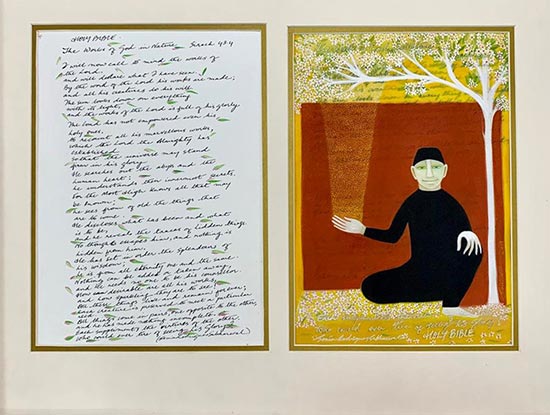 HOLY BIBLE.
The Works of God in Nature. Sirach 42.4
I will now call to mind the works of
the Lord,
and will declare what I have seen.
By the word of the Lord his works are made;
and all his creatures do his will.
The sun looks down on everything
with its light,
and the works of the Lord is full of his glory.
The Lord has not empowered even his
holy ones,
to recount all his marvellous works,
which the Lord the Almighty has
established
so that the universe may stand
firm in his glory.
He searches out the abyss and the
human heart;
he understands their innermost secrets,
For the Most High knows all that may
be known;
he sees from of old the things that
are to come.
He discloses what has been and what
is to be,
and he reveals the traces of hidden things.
No thought escapes him, and nothing is
hidden from him.
He has set in order the splendours of
his wisdom;
he is from all eternity one and the same.
Nothing can be added or taken away,
and he needs no one to be his counsellor.
How desirable are all his works,
and how sparkling they are to see.
All these things live and remain forever;
each creature is preserved to meet a particular
need.
All things come in pairs, one opposite to the other,
and he has made nothing incomplete.
Each supplements the virtues of the other.
Who could ever tire of seeing his Glory?
HOLY BIBLE